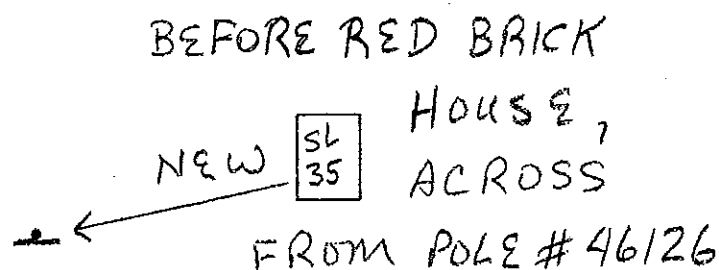 BEFORE RED BRICK
HOUSE,
NEW
SL
35
ACROSS
FROM POLE # 46126